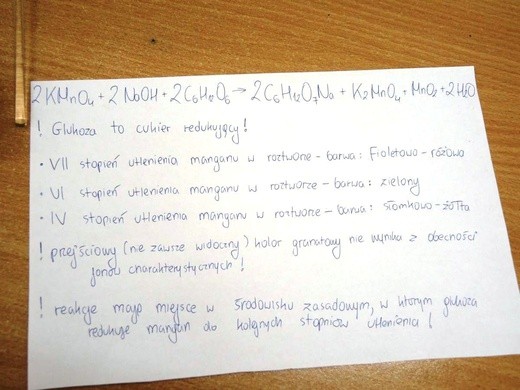 2KMnO₄ + 2NaOH + 2C₆H₁₂O₆ → 2C₆H₁₂O₇Na + K₂MnO₄ + MnO₂ + 2H₂O
! Glukoza to cukier redukujący!
• VII stopień utlenienia manganu w roztworze - barwa: Fioletowo - różowa
• VI stopień utlenienia manganu w roztworze - barwa: zielony
• IV stopień utlenienia manganu w roztworze - barwa: słomkowo - żółta
! przejściowy (nie zawsze widoczny) kolor granatowy nie wynika z obecności
jonów charakterystycznych!
! reakcje mają miejsce w środowisku zasadowym, w którym glukoza
redukuje mangan do kolejnych stopniów utlenienia!